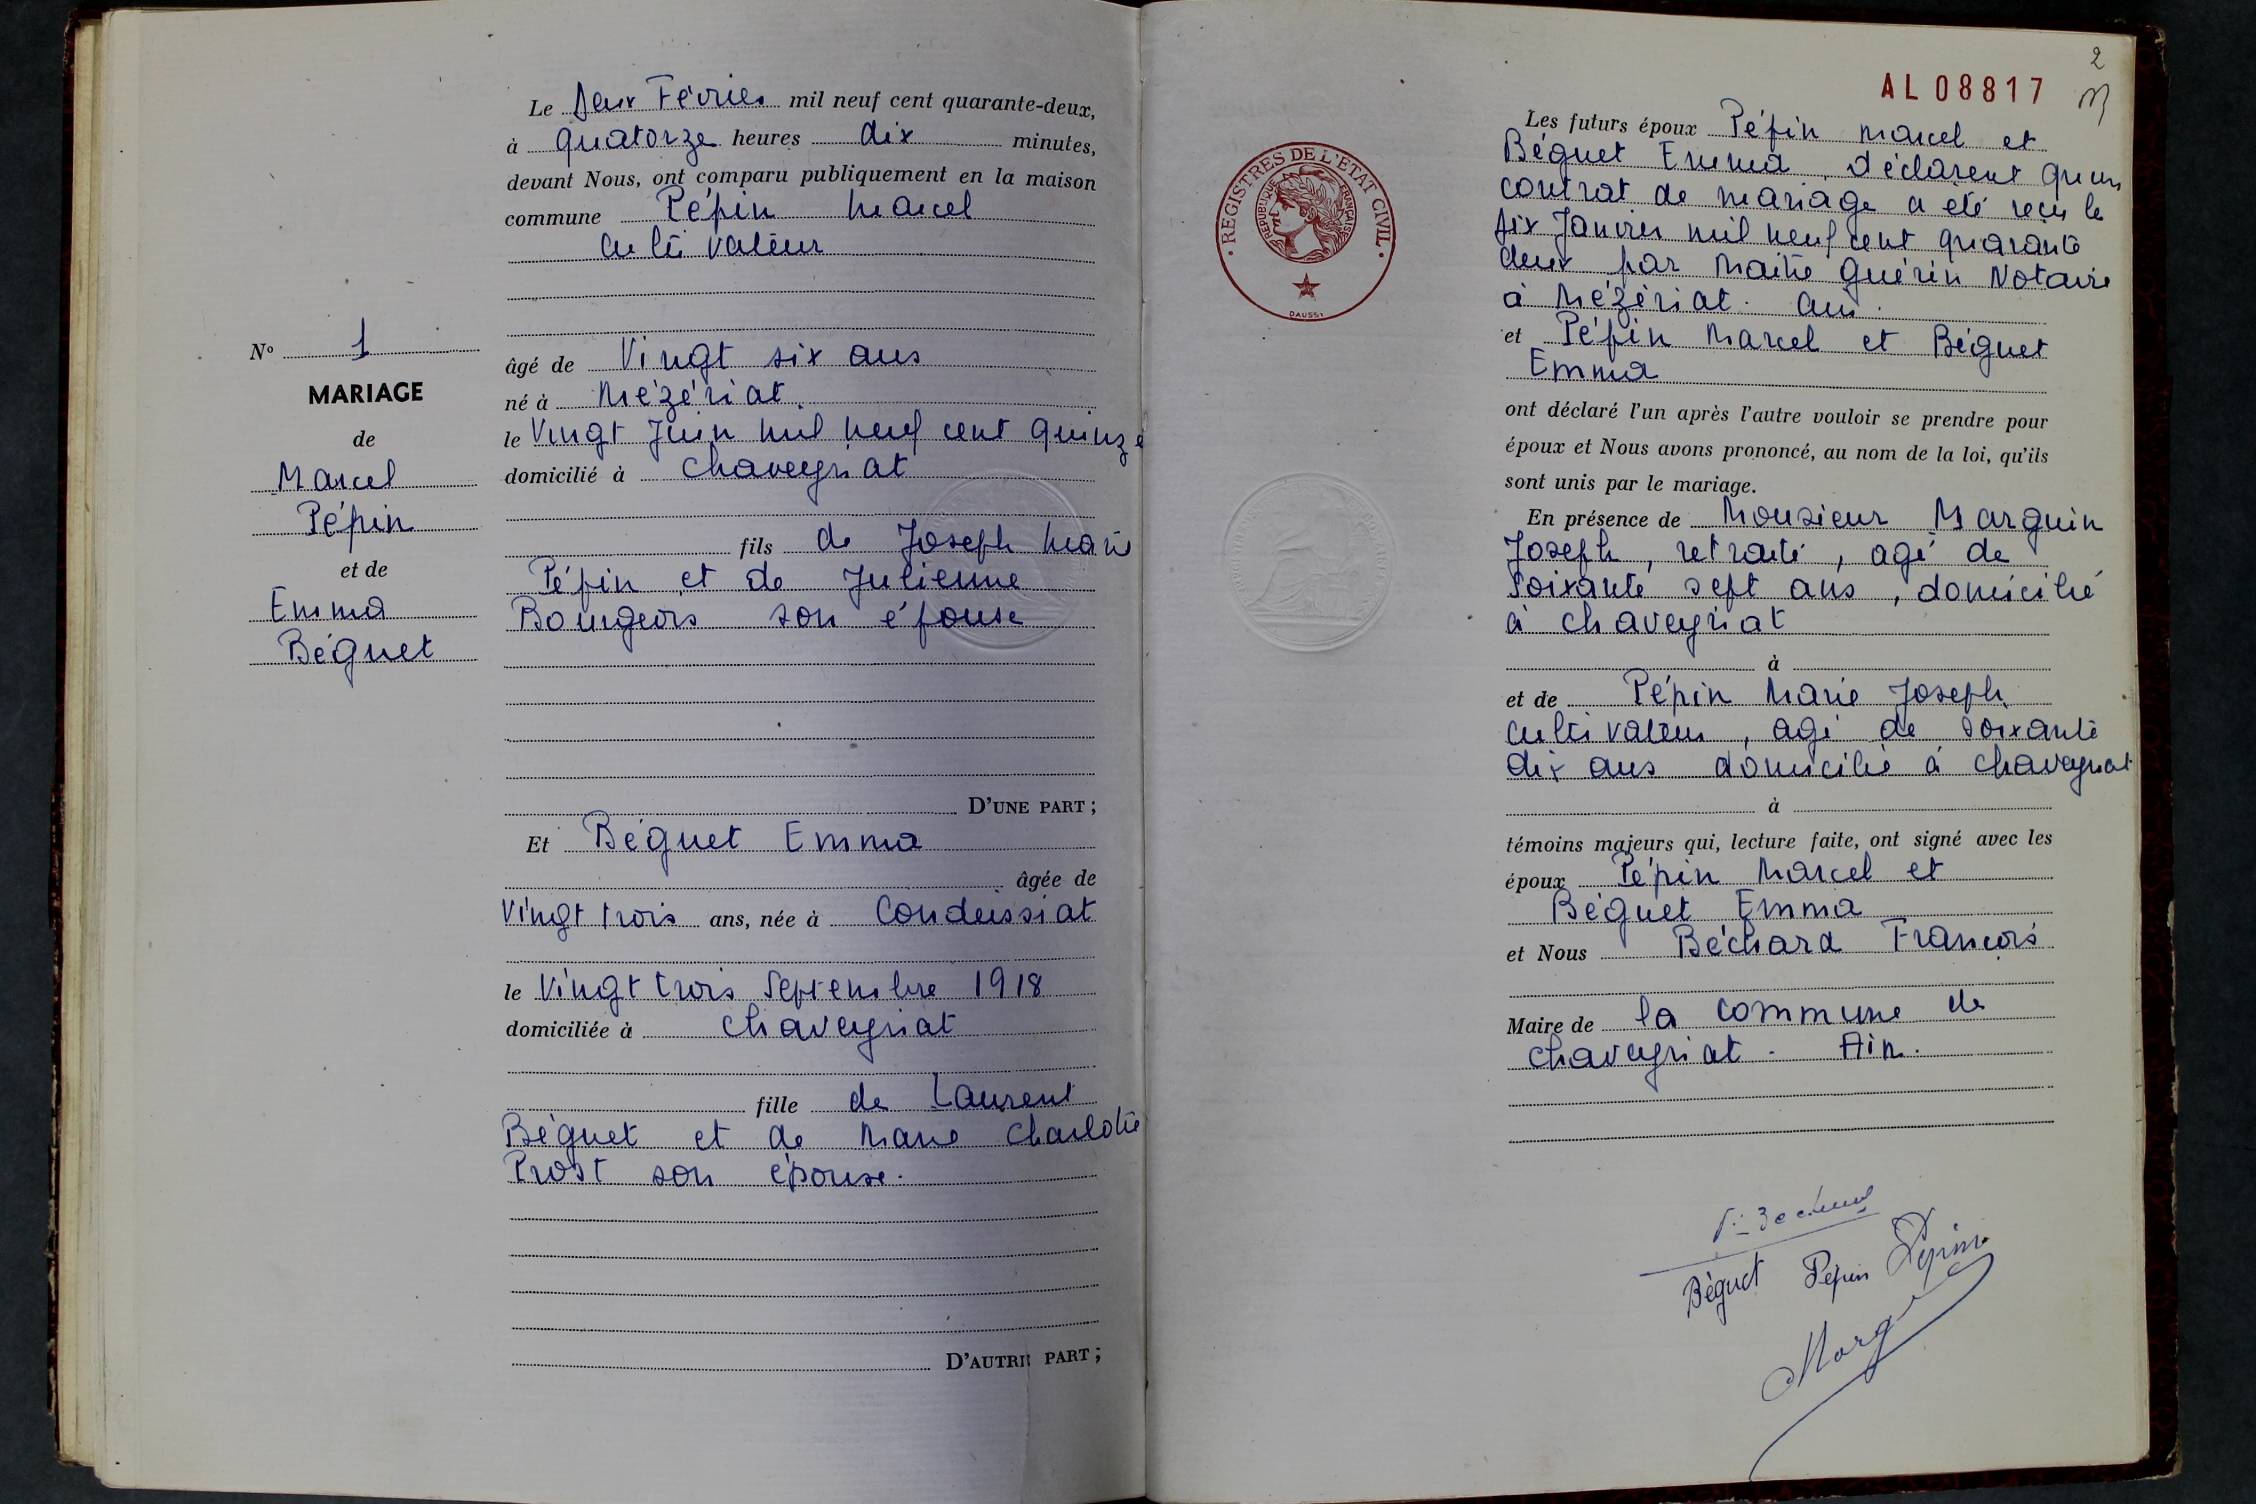 N° 1
MARIAGE
de
Marcel
Pépin
et de
Emma
Béguet
Le deux Février mil neuf cent quarante-deux,
à quatorze heures dix minutes,
devant Nous, ont comparu publiquement en la maison
commune Pépin Marcel
cultivateur
âgé de Vingt six ans
né à Mézériat.
le Vingt Juin mil neuf cent quinze
domicilié à Chaveyriat
fils de Joseph Marie
Pépin et de Julienne
Bourgeois son épouse
D'UNE PART ;
Et Béguet Emma
âgée de
Vingt trois ans, née à Condeissiat
le Vingt trois Septembre 1918
domiciliée à Chaveyriat
fille de Laurent
Béguet et de Marie Charlotte
Prost son épouse.
D'AUTRE PART ;
2
AL 08817
REGISTRES DE L'ETAT CIVIL
REPUBLIQUE FRANÇAISE
DAUSSY
Les futurs époux Pépin Marcel et
Béguet Emma, déclarent qu'un
contrat de mariage a été reçu le
six Janvier mil neuf cent quarante
deux par Maître Guérin Notaire
à Mézériat. Ain.
et Pépin Marcel et Béguet
Emma
ont déclaré l'un après l'autre vouloir se prendre pour
époux et Nous avons prononcé, au nom de la loi, qu'ils
sont unis par le mariage.
En présence de Monsieur Marguin
Joseph, retraité, agé de
soixante sept ans, domicilié
à Chaveyriat
à
et de Pépin Marie Joseph
cultivateur, agé de soixante
dix ans domicilié à Chaveyriat
à
témoins majeurs qui, lecture faite, ont signé avec les
époux Pépin Marcel et
Béguet Emma
et Nous Béchard François
Maire de la commune de
Chaveyriat. Ain.
Béguet Pépin Pépin